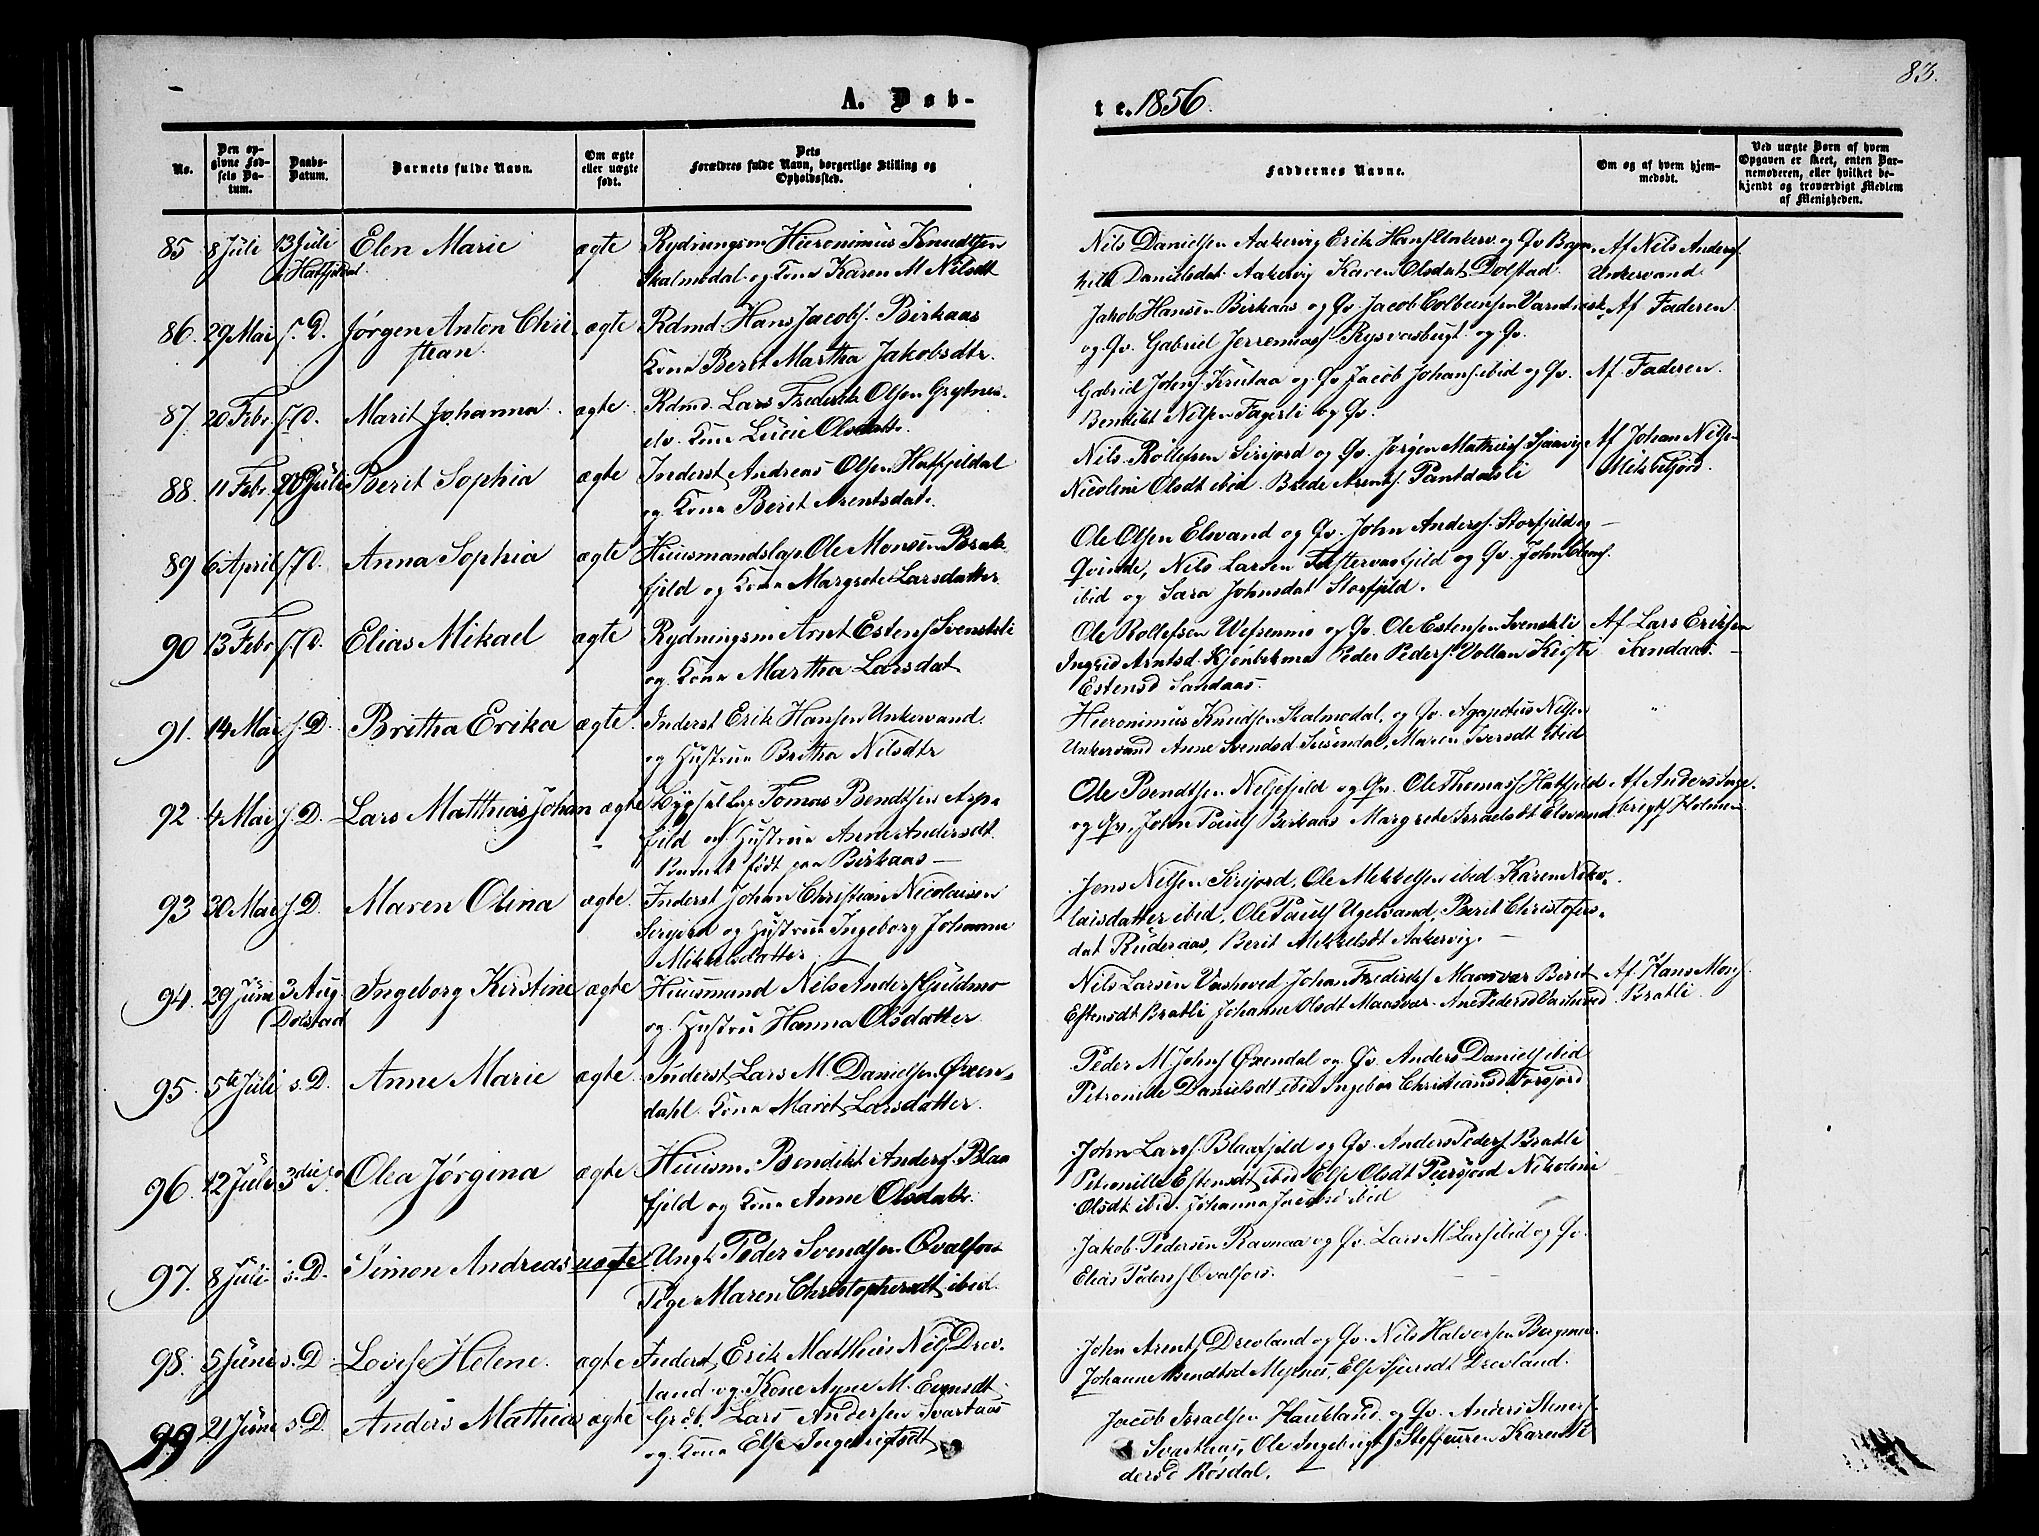 83.
A. Døb-
te. 1856.
No.
Den op-
givne Fød-
sels Da-
tum.
Daabs-
Datum.
Barnets fulde Navn.
Om ægte
eller uægte
født.
Dets
Forældres fulde Navn, borgerlige Stilling og
Opholdssted.
Faddernes Navne.
Om og af hvem hjem-
medøbt.
Ved uægte Børn af hvem
Opgaven er skeet, enten Bar-
nemoderen, eller hvilket be-
kjendt og troværdigt Medlem
af Menigheden.
85 8 Juli 13 Juli Elen Marie ægte Rydningsm Hieronimus Knudtsen
Hatfjeldal
Skalmodal og Kona Karen M Nilsdt
Nils Danielsen Aakervig Erik Hans Unkerv. og Qv Ragn
hild Danielsdat Aakervig Karen Olsdat Dolstad
Af Nils Anders
Unkervand
86. 29 Mai s. D. Jørgen Anton Chri
stian.
ægte Rdmd. Hans Jacobs. Birkaas
Kona Berit Martha Jakobsdtr.
Jakob Hansen Birkaas og Qv. Jacob
og Qv. Gabriel Jerremias og Qv.
Af Faderen
87. 20 Febr s. D. Marit Johanna. ægte. Rdmd. Lars Frederik Olsen Grytnes-
elv. Kona Lucie Olsdatt.
Gabriel Johns. Krutaa og Qv Jacob Johans. ibid og Qv.
Bendikt Nilsen Fagerli og Qv.
Af Faderen.
88. 11 Febr 20 Juli Berit Sophia ægte Inderst Andreas Olsen Hatfjeldal
og Kona Berit Arentsdat.
Nils Rollefsen Sirijord og Qv. Jørgen Mathiess
Nicolini Olsdt ibid. Arents. Pantdalsli
Af Johan Nils-
89 6 April s. D. Anna Sophia ægte Huusmandslap Ole Monsen Brak-
fjeld og Kona Margrete Larsdatter
Ole Olsen Elsvand og Qv. John Anders. Storfjeld og
Qvinde, Nils Larsen og Qv. John
ibid og Sara Johnsdat Storfjeld.
90 13 Febr s. D. Elias Mikael ægte Rydningsm Arnt Estens Svenskli
og Kona Martha Larsdat
Ole Rollefsen Wefsenmo og Qv. Ole Estensen Svenskli
Ingrid Arntsd. Peder Peders. Vollan Kirsti
Estensd Sandaas.
Af Lars Eriksen
Sandaas.
91. 14 Mai s. D. Britha Erika ægte Inderst Erik Hansen Unkervand.
og Hustrue Britha Nilsdtr
Hieronimus Knudsen Skalmodal, og Qv. Agapetus Nilsen
Unkervand Anne Svendsd Susendal, Maren Iversdt ibid
92. 4 Mai s. D. Lars Matthias Johan ægte Lap Tomas Bendtsen
fjeld og Hustrue Anne Andersdt.
Barnet født paa Birkaas
Ole Bendtsen og Qv. Ole Thomass Hatfjeld
og Qv. John Pauls Birkaas Margrete Israelsdt Elsvand
Af Anders Inge-
brigts Holmen
93 30 Mai s. D. Maren Olina ægte. Inderst Johan Christian Nicolaisen
Sirijord og Hustrue Ingeborg Johanna
Mikkelsdatter
Jens Nilsen Sirijord. Ole Mikkelsen ibid Karen Niko-
laisdatter ibid. Ole Pauls Ugelvand, Berit Christofers-
dat Ruderaas, Berit Mikkelsdt Aakervig.
94. 29 Juni 3 Aug Ingeborg Kirstine ægte Huusmand Nils Anders Guldmo
(Dolstad
og Hustrue Hanna Olsdatter
Nils Larsen Vashoved Johan Frederiks Maasvær Berit
Estensdt Bratli Johanne Olsdt Maasvær. Ane Pedersd Vashoved
Af Hans Mons.
Bratli
95. 5te Juli s. D. Anne Marie ægte. Inderst Lars M. Danielsen Øxen-
dahl. Kona Marit Larsdatter
Peder M Johns Øxendal og Qv. Anders Daniels ibid
Petronille Danielsdt ibid Ingebor Christiansd Forsjord
96. 12 Juli 3die s. D Olea Jørgina ægte Huusm. Bendikt Anders. Blaa
fjeld og Kona Anne Olsdatt.
John Lars. Blaafjeld og Qv. Anders Peders Bratli
Petronille Estensdt ibid Else Olsdt Nikolini
Olsdt ibid. Johanna Jacobsd ibid
97. 8 Juli s. D. Simon Andreas uægte Ungk Peder Svendsen Qvalfors
Pige Maren Christophersdt ibid.
Jakob Pedersen Ravnaa og Qv. Lars M Lars ibid og Qv.
Elias Peders Qvalfors.
98. 5 Juni s. D. Lovise Helene. ægte Inderst Erik Mathias Nils Drev-
land og Kone Anne M.
John Arents Drevland og Qv. Nils Halvorsen
Johanne Else Drevland.
99 21 Juni s. D. Anders Mathias ægte Grdb. Lars Andersen Svartaas
og Kona Else Ingebrigtsdt
Jacob Israelsen Haukland og Qv. Anders Steners.
Svartaas, Ole Ingebrigts Karen
dersd Røsdal.